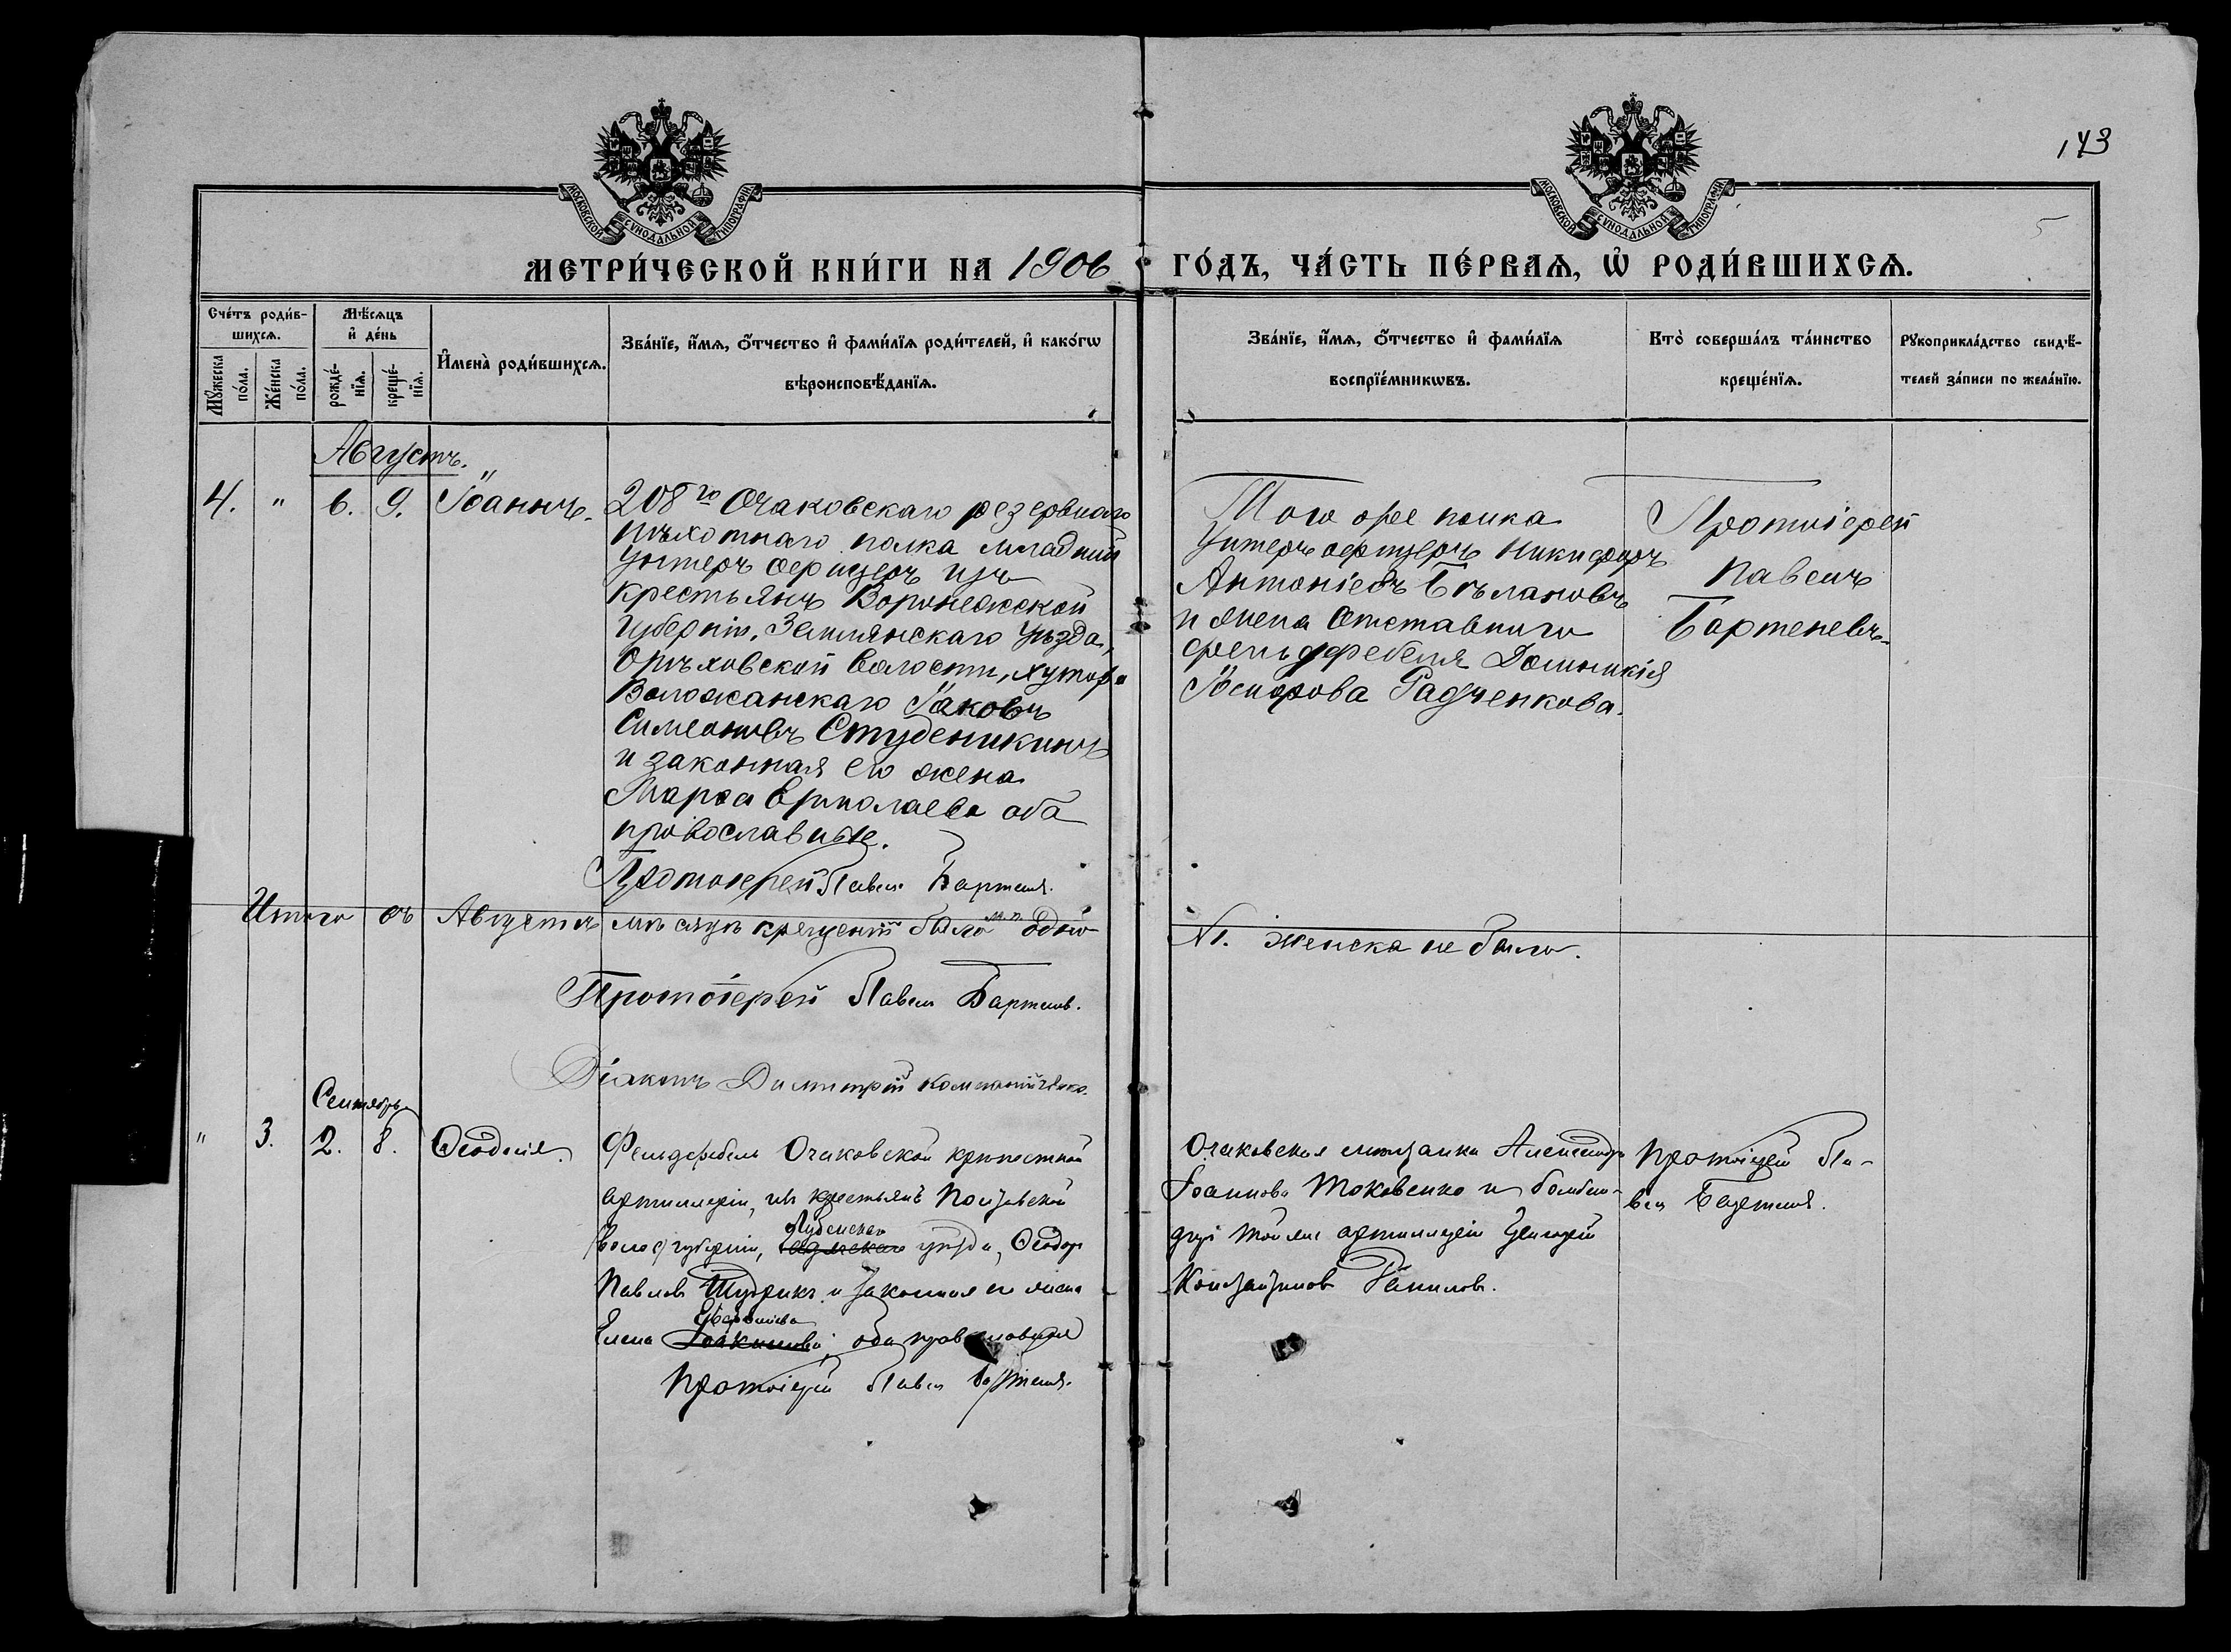 143
5
МОСКОВСКОЙ СѴНОДАЛЬНОЙ ТИПОГРАФІИ
МОСКОВСКОЙ СѴНОДАЛЬНОЙ ТИПОГРАФІИ
МЕТРИ́ЧЕСКОЙ КНИ́ГИ НА 1906 ГО́ДЪ, ЧА́СТЬ ПЕ́РВАѦ, Ѡ҆ РОДИ́ВШИХСѦ.
Сче́тъ роди́в-
шихсѧ.
Мꙋ́жеска
по́ла.
Же́нска
по́ла.
Мѣ́сѧцъ
и҆ де́нь
рожде́-
нїѧ.
креще́-
нїѧ.
И҆мена̀ роди́вшихсѧ.
Зва́нїе, и҆́мѧ, ѻ҆́тчество и҆ фами́лїѧ роди́телей, и҆ како́гѡ
вѣроисповѣ́данїѧ.
Зва́нїе, и҆́мѧ, ѻ҆́тчество и҆ фами́лїѧ
воспрїе́мникѡвъ.
Кто̀ соверша́лъ та́инство
креще́нїѧ.
Рꙋкоприкла́дство свидѣ́-
телей за́писи по жела́нїю.
Августъ.
4. " 6. 9. Іоаннъ.
208го Очаковскаго резервнаго
пѣхотнаго полка младшій
унтеръ офицеръ изъ
крестьянъ Воронежской
губерніи, Землянскаго уѣзда,
Орѣховской волости, хутора
Воложанскаго Іаковъ
Симеоновъ Студеникинъ
и законная его жена
Марѳа Ермолаева оба
православные.
Протоіерей Павелъ Бартенев.
Того же полка
Унтеръ офицеръ Никифоръ
Антоніевъ Бѣлановъ
и жена отставнаго
фельдфебеля Домникія
Іосифова Радченкова.
Протоіерей
Павелъ
Бартеневъ.
Итого въ Августѣ мѣсяцѣ крещеній было м. п. одно
№1. женска не было.
Протоіерей Павелъ Бартенев.
Діаконъ Димитрій
Сентябрь
" 3. 2. 8. Ѳеодосія.
Фельдфебель Очаковской крѣпостной
артиллеріи, изъ крестьянъ Полтавской
губерніи, Лубенскаго уѣзда, Ѳеодор
Павловъ Шудрикъ и законная его жена
Елена оба православные
Протоіерей Павелъ Бартенев.
Очаковская мѣщанка Александра
Іоаннова Токовенко и бомбар-
диръ той же артиллеріи Григорій
Константинов Данилов.
Протоіерей Па-
велъ Бартенев.